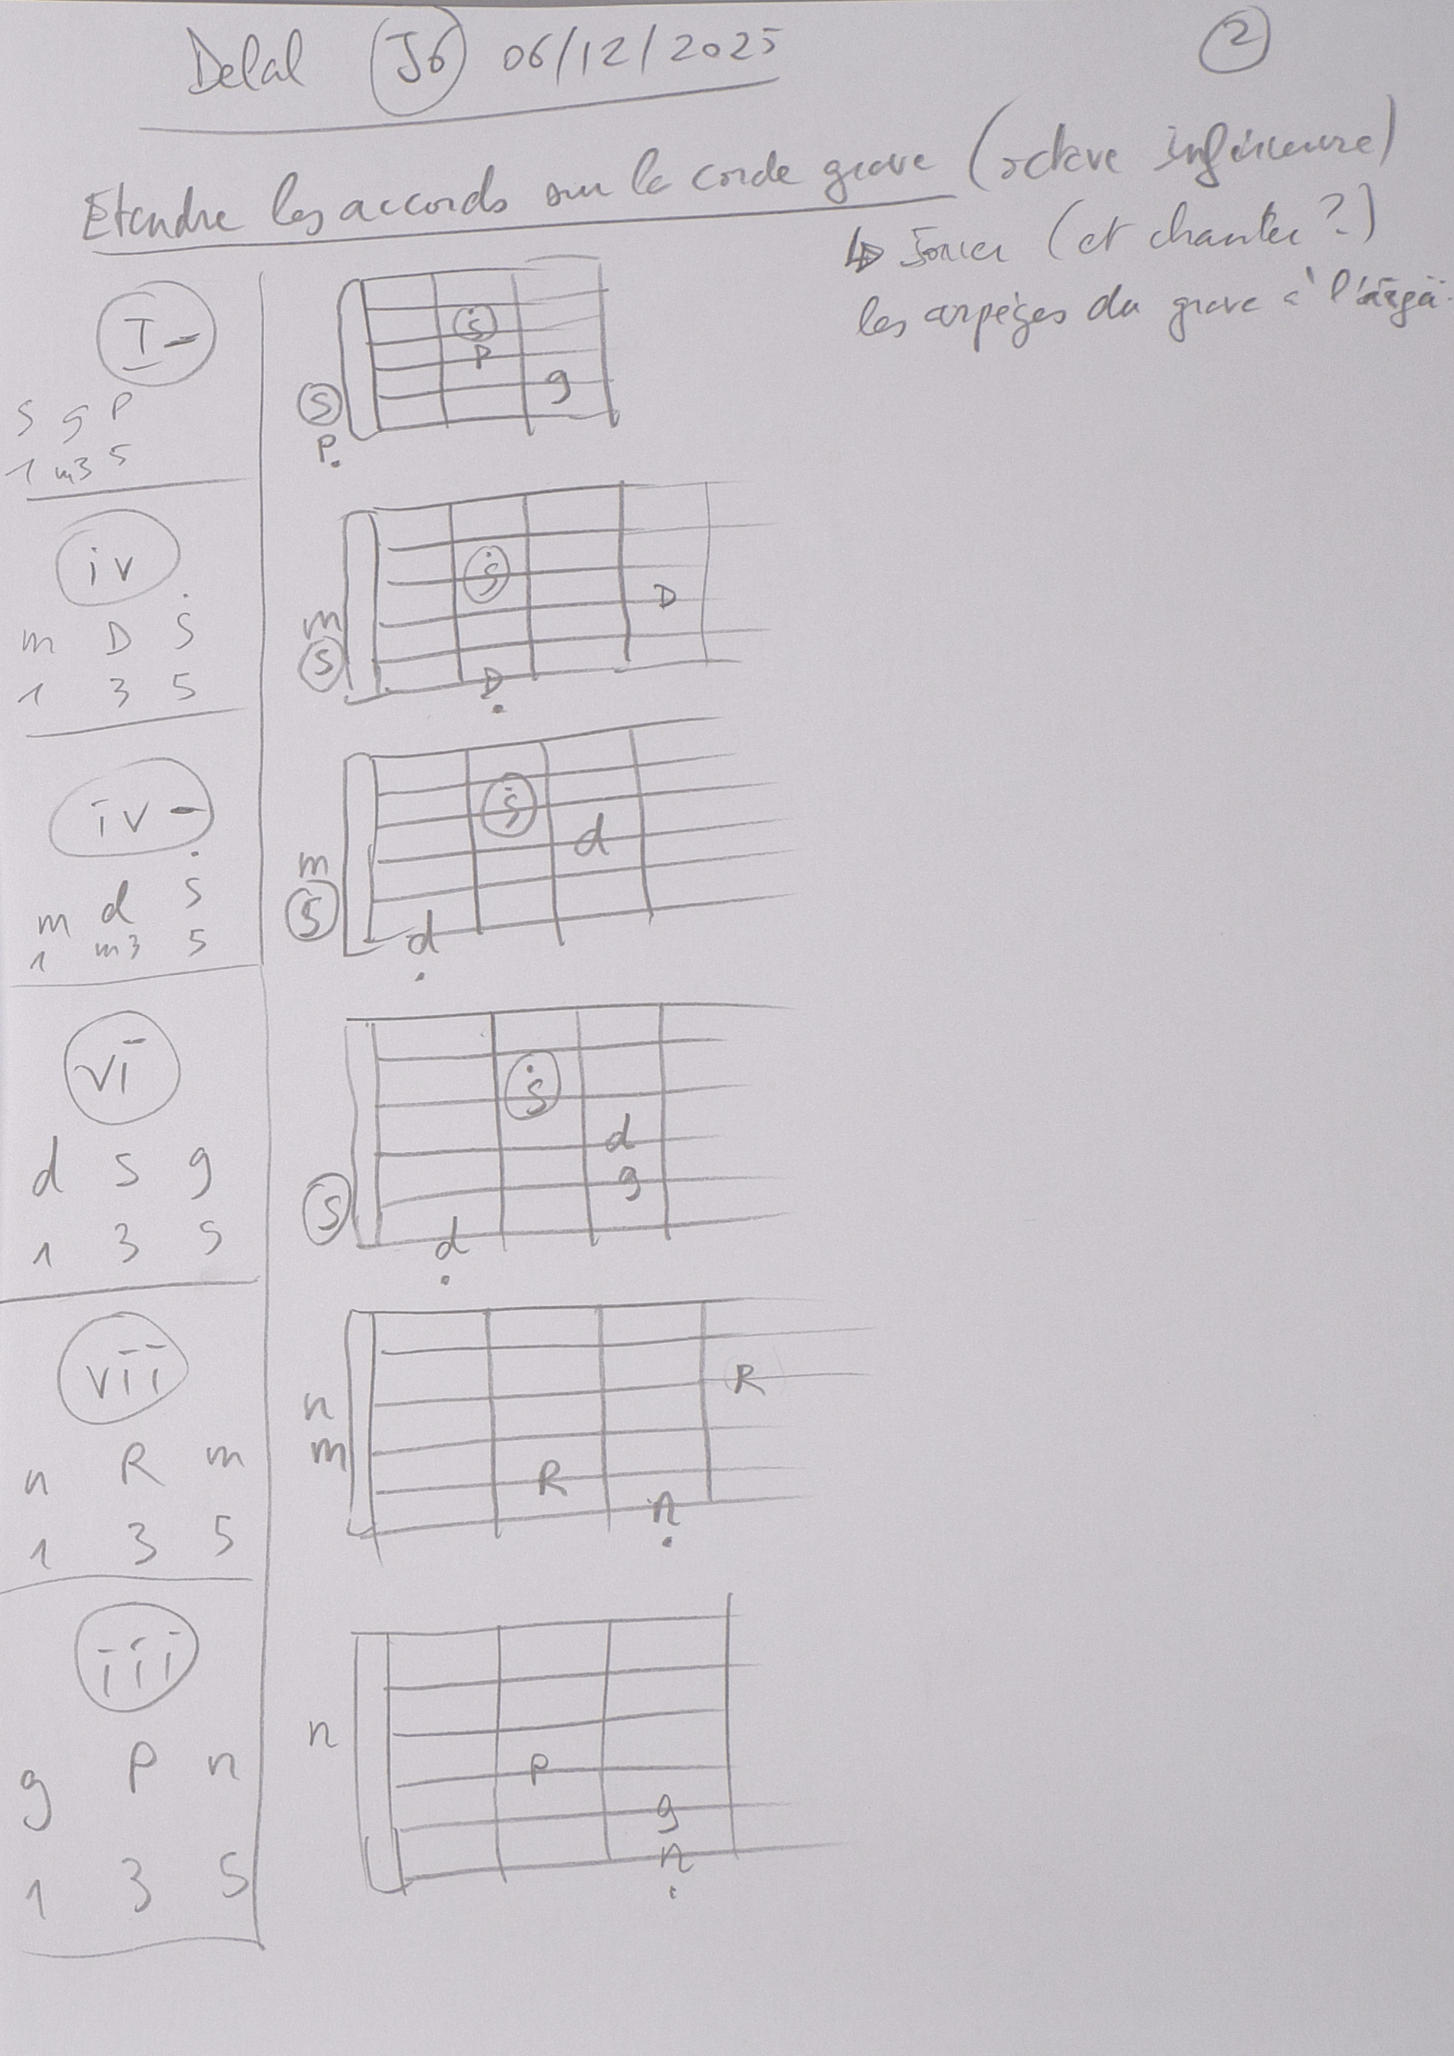 Delal J6 06/12/2025
2
Etendre les accords sur la corde grave (octave inférieure)
↳ Jouer (et chanter ?)
les arpèges du grave à l'aigü
I-
S g P
1 m3 5
Ṡ
P
g
S
P.
iv
m D Ṡ
1 3 5
Ṡ
m
D
S
Ḍ
iv-
m d Ṡ
1 m3 5
Ṡ
m
d
S
ḍ
vi
d S g
1 3 5
Ṡ
d
g
S
ḍ
vii
n R m
1 3 5
R
n
m
R
ṇ
iii
g P n
1 3 5
n
P
g
ṇ